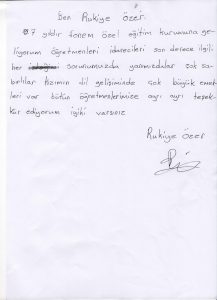 Ben Rukiye Özer.
07 yıldır fonem özel eğitim kurumuna ge-
liyorum öğretmenleri idarecileri son derece ilgili
her sorunumuzda yanımızdalar çok sa-
bırlılar kızımın dil gelişiminde çok büyük emek-
leri var bütün öğretmenlerimize ayrı ayrı teşek-
kür ediyorum iyiki varsınız
Rukiye Özer